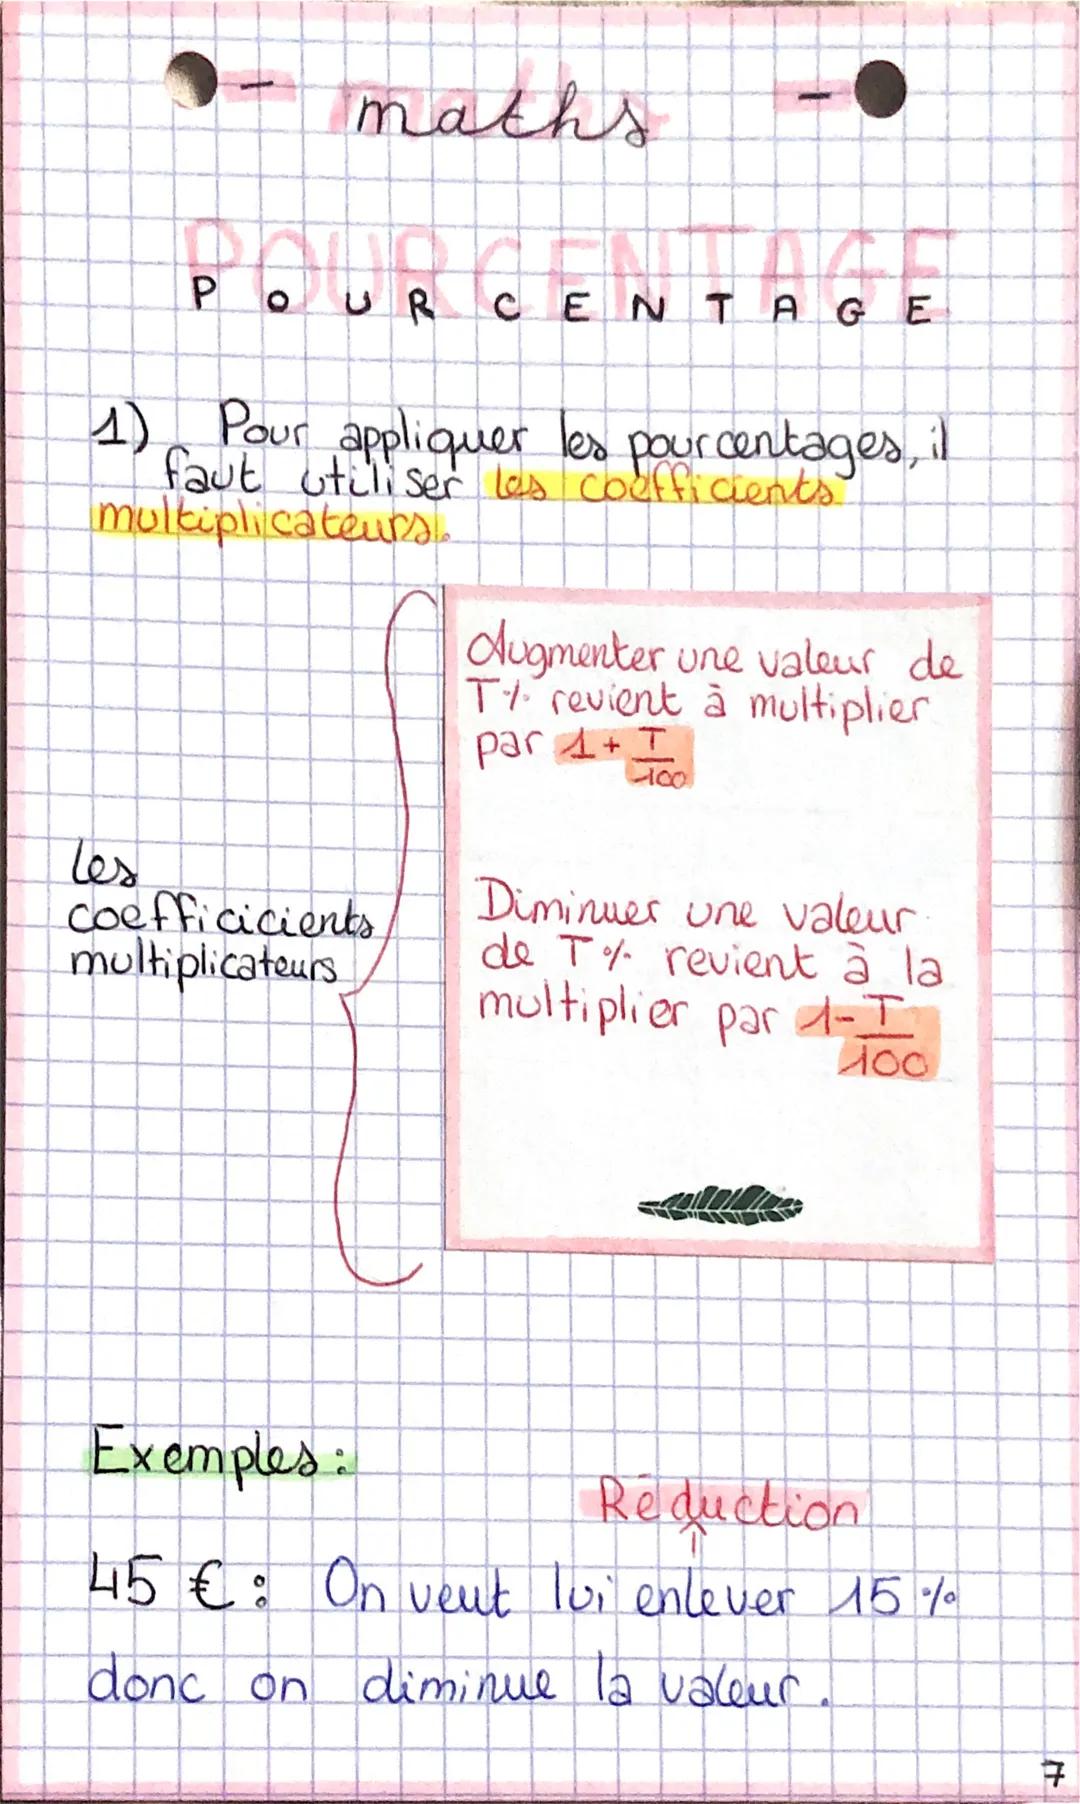 - maths -
POURCENTAGE
POURCENTAGE
1) Pour appliquer les pourcentages, il
faut utiliser les coefficients
multiplicateurs.
Augmenter une valeur de
T% revient à multiplier
par 1 + T/100
les
coefficicients
multiplicateurs
Diminuer une valeur
de T% revient à la
multiplier par 1 - T/100
Exemples :
Réduction
45 € : On veut lui enlever 15 %
donc on diminue la valeur.
7